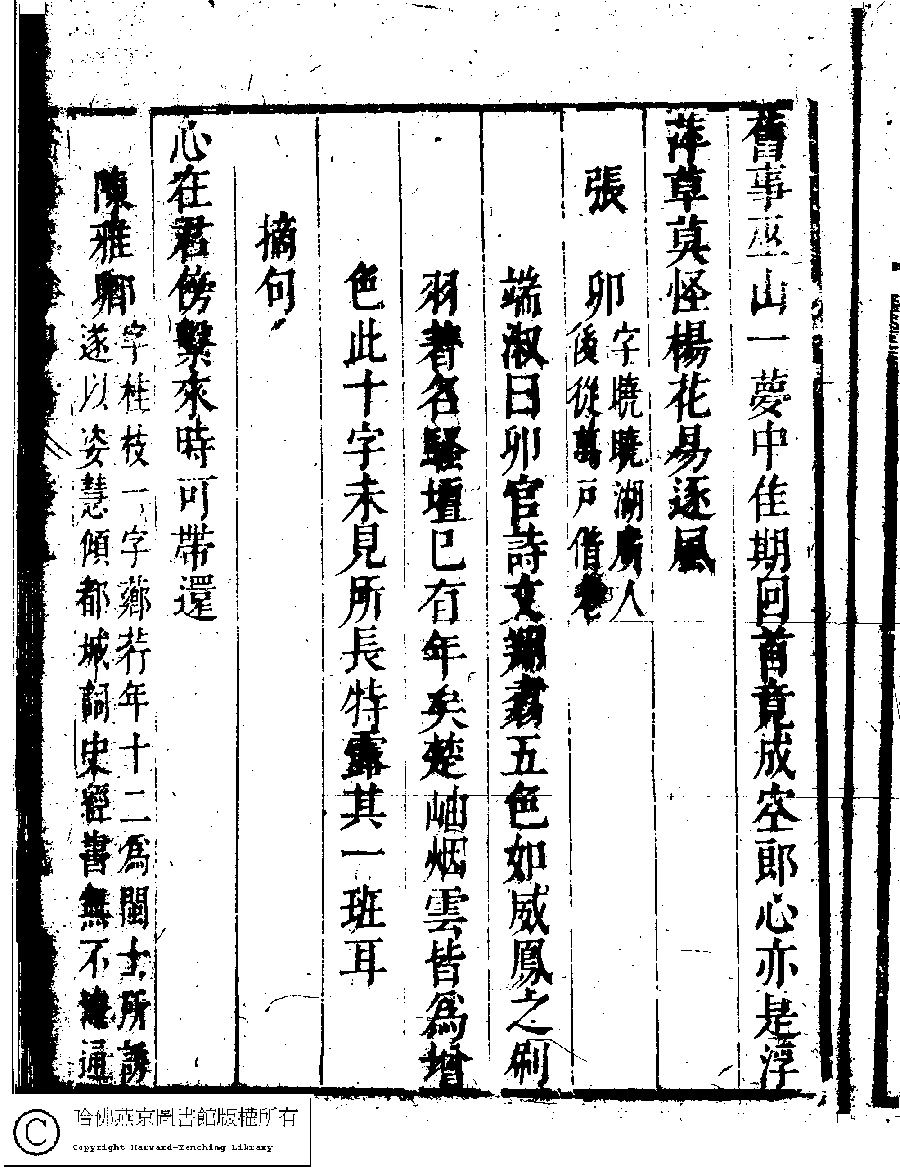 舊事巫山一夢中佳期回首竟成空郎心亦是浮
萍草莫怪楊花易逐風
張 卯
字曉曉湖廣人
後從萬戶偕
端淑曰卯官詩文翔翥五色如威鳳之刷
羽著名騷壇已有年矣楚岫烟雲皆為增
色此十字未見所長特露其一班耳
摘句
心在君傍繫來時可帶還
陳雅卿
字桂枝一字薌荇年十二為閩士所誘
遂以姿慧傾都城詞史經書無不通
哈佛燕京圖書館版權所有
Copyright Harvard-Yenching Library